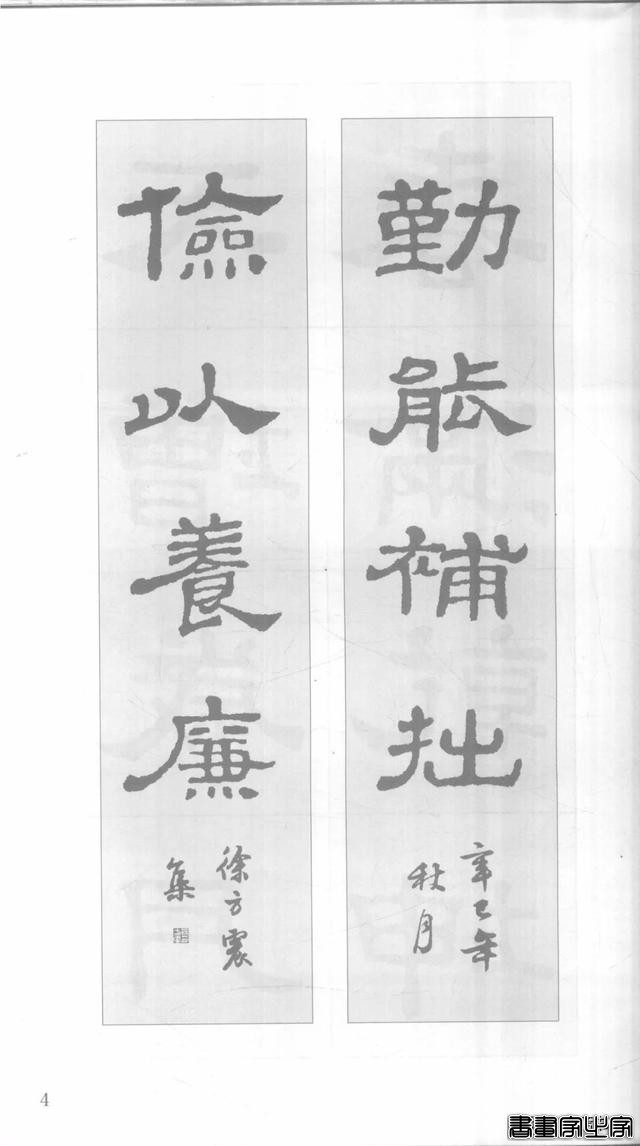 勤能補拙
辛巳年
秋月
儉以養廉
徐方震
集
4
書畫家必字